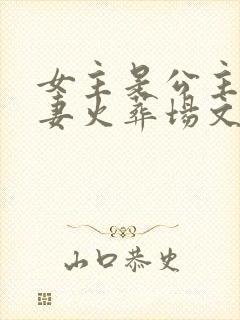 女主是公主追
妻火葬场文
山口恭史